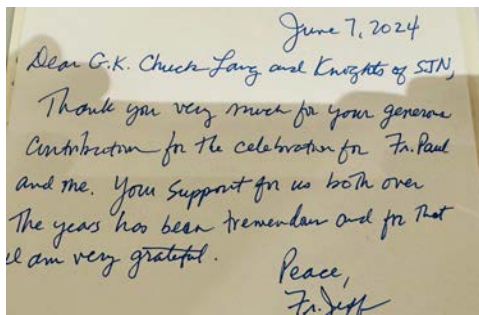 June 7, 2024
Dear G.K. Chuck Lang and Knights of SJN,
Thank you very much for your generous
Contribution for the celebration for Fr. Paul
and me. Your Support for us both over
The years has been tremendous and for That
I am very grateful.
Peace,
Fr. Jeff